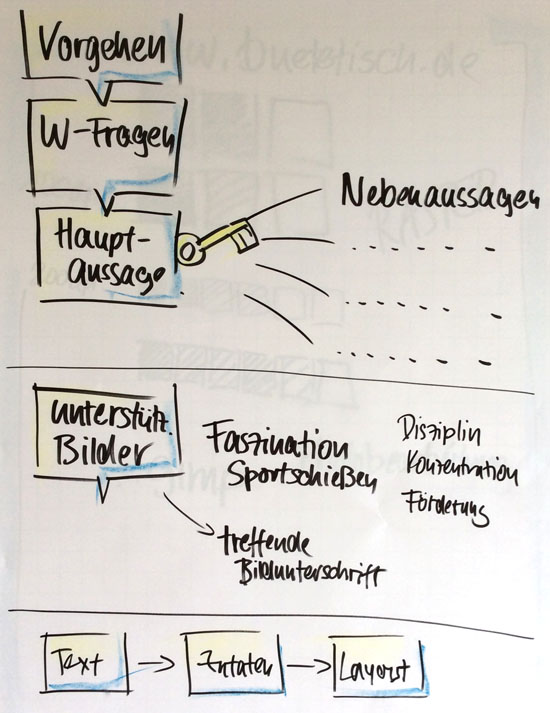 Vorgehen
W-Fragen
Haupt-
aussage
Nebenaussagen
unterstütz.
Bilder
Faszination
Sportschießen
Disziplin
Konzentration
Förderung
treffende
Bildunterschrift
Text → Zutaten → Layout